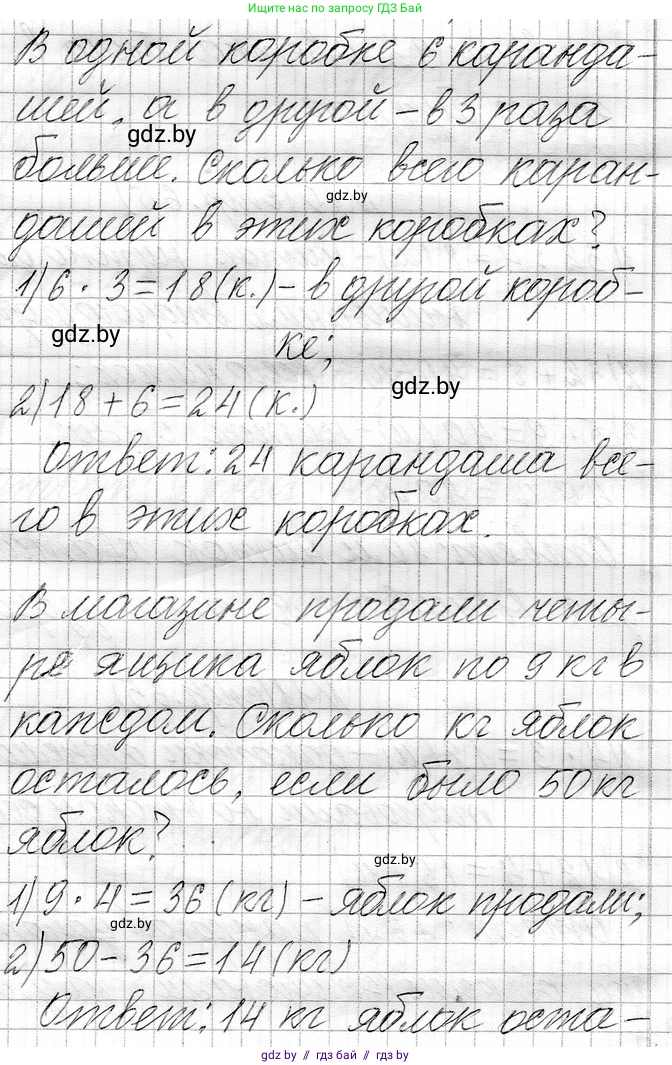 Ищите нас по запросу ГДЗ Бай
В одной коробке 6 каранда-
шей, а в другой – в 3 раза
gdz.by
больше. Сколько всего каран-
gdz.by
дашей в этих коробках?
1) 6 · 3 = 18 (к.) – в другой короб-
gdz.by
ке;
gdz.by
2) 18 + 6 = 24 (к.)
Ответ: 24 карандаша все-
го в этих коробках.
В магазине продали четы-
ре ящика яблок по 9 кг в
каждом. Сколько кг яблок
осталось, если было 50 кг
яблок?
gdz.by
1) 9 · 4 = 36 (кг) – яблок продали;
gdz.by
2) 50 – 36 = 14 (кг)
Ответ: 14 кг яблок оста-
gdz.by // гдз бай // гдз.by